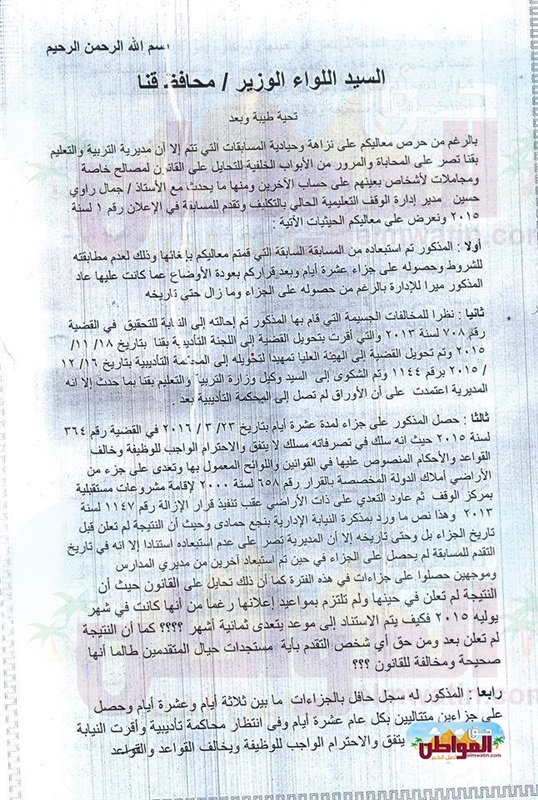 بسم الله الرحمن الرحيم
السيد اللواء الوزير / محافظ قنا
تحية طيبة وبعد
بالرغم من حرص معاليكم على نزاهة وحيادية المسابقات التي تتم إلا أن مديرية التربية والتعليم
بقنا تصر على المحاباة والمرور من الأبواب الخلفية للتحايل على القانون لمصالح خاصة
ومجاملات لأشخاص بعينهم على حساب الآخرين ومنها ما يحدث مع الأستاذ / جمال راوي
حسين مدير إدارة الوقف التعليمية الحالي بالتكليف وتقدم للمسابقة في الإعلان رقم ١ لسنة
٢٠١٥ ونعرض على معاليكم الحيثيات الآتية :
أولا : المذكور تم استبعاده من المسابقة السابقة التي قمتم معاليكم بإلغائها وذلك لعدم مطابقته
للشروط وحصوله على جزاء عشرة أيام وبعد قراركم بعودة الأوضاع عما كانت عليها عاد
المذكور مديرا للإدارة بالرغم من حصوله على الجزاء وما زال حتى تاريخه
ثانيا : نظرا للمخالفات الجسيمة التي قام بها المذكور تم إحالته إلى النيابة للتحقيق في القضية
رقم ٧٠٨ لسنة ٢٠١٣ والتي أقرت بتحويل القضية إلى اللجنة التأديبية بقنا بتاريخ ١٨/ ١١/
٢٠١٥ وتم تحويل القضية إلى الهيئة العليا تمهيدا لتحويله إلى المحكمة التأديبية بتاريخ ١٦/ ١٢
/ ٢٠١٥ برقم ١١٤٤ وتم الشكوى إلى السيد وكيل وزارة التربية والتعليم بقنا بما حدث إلا انه
المديرية اعتمدت على أن الأوراق لم تصل إلى المحكمة التأديبية بعد
ثالثا : حصل المذكور على جزاء لمدة عشرة أيام بتاريخ ٢٣/ ٣ / ٢٠١٦ في القضية رقم ٣٦٤
لسنة ٢٠١٥ حيث انه سلك في تصرفاته مسلك لا يتفق والاحترام الواجب للوظيفة وخالف
القواعد والأحكام المنصوص عليها في القوانين واللوائح المعمول بها وتعدى على جزء من
الأراضي أملاك الدولة المخصصة بالقرار رقم ٦٥٨ لسنة ٢٠٠٠ لإقامة مشروعات مستقبلية
بمركز الوقف ثم عاود التعدي على ذات الأراضي عقب تنفيذ قرار الإزالة رقم ١١٤٧ لسنة
٢٠١٣ وهذا نص ما ورد بمذكرة النيابة الإدارية بنجع حمادى وحيث أن النتيجة لم تعلن قبل
تاريخ الجزاء بل وحتى تاريخه إلا أن المديرية تصر على عدم استبعاده استنادا إلا انه في تاريخ
التقدم للمسابقة لم يحصل على الجزاء في حين تم استبعاد آخرين من مديري المدارس
وموجهين حصلوا على جزاءات في هذه الفترة كما أن ذلك تحايل على القانون حيث أن
النتيجة لم تعلن في حينها ولم تلتزم بمواعيد إعلانها رغما من أنها كانت في شهر
يوليه ٢٠١٥ فكيف يتم الاستناد إلى موعد يتعدى ثمانية أشهر ؟؟؟؟ كما أن النتيجة
لم تعلن بعد ومن حق أي شخص التقدم بأية مستجدات حيال المتقدمين طالما أنها
صحيحة ومخالفة للقانون ؟؟؟
رابعا : المذكور له سجل حافل بالجزاءات ما بين ثلاثة أيام وعشرة أيام وحصل
على جزاءين متتاليين بكل عام عشرة أيام وفى انتظار محاكمة تأديبية وأقرت النيابة
يتفق والاحترام الواجب للوظيفة ويخالف القواعد والقواعد
المواطن
almwatin.com